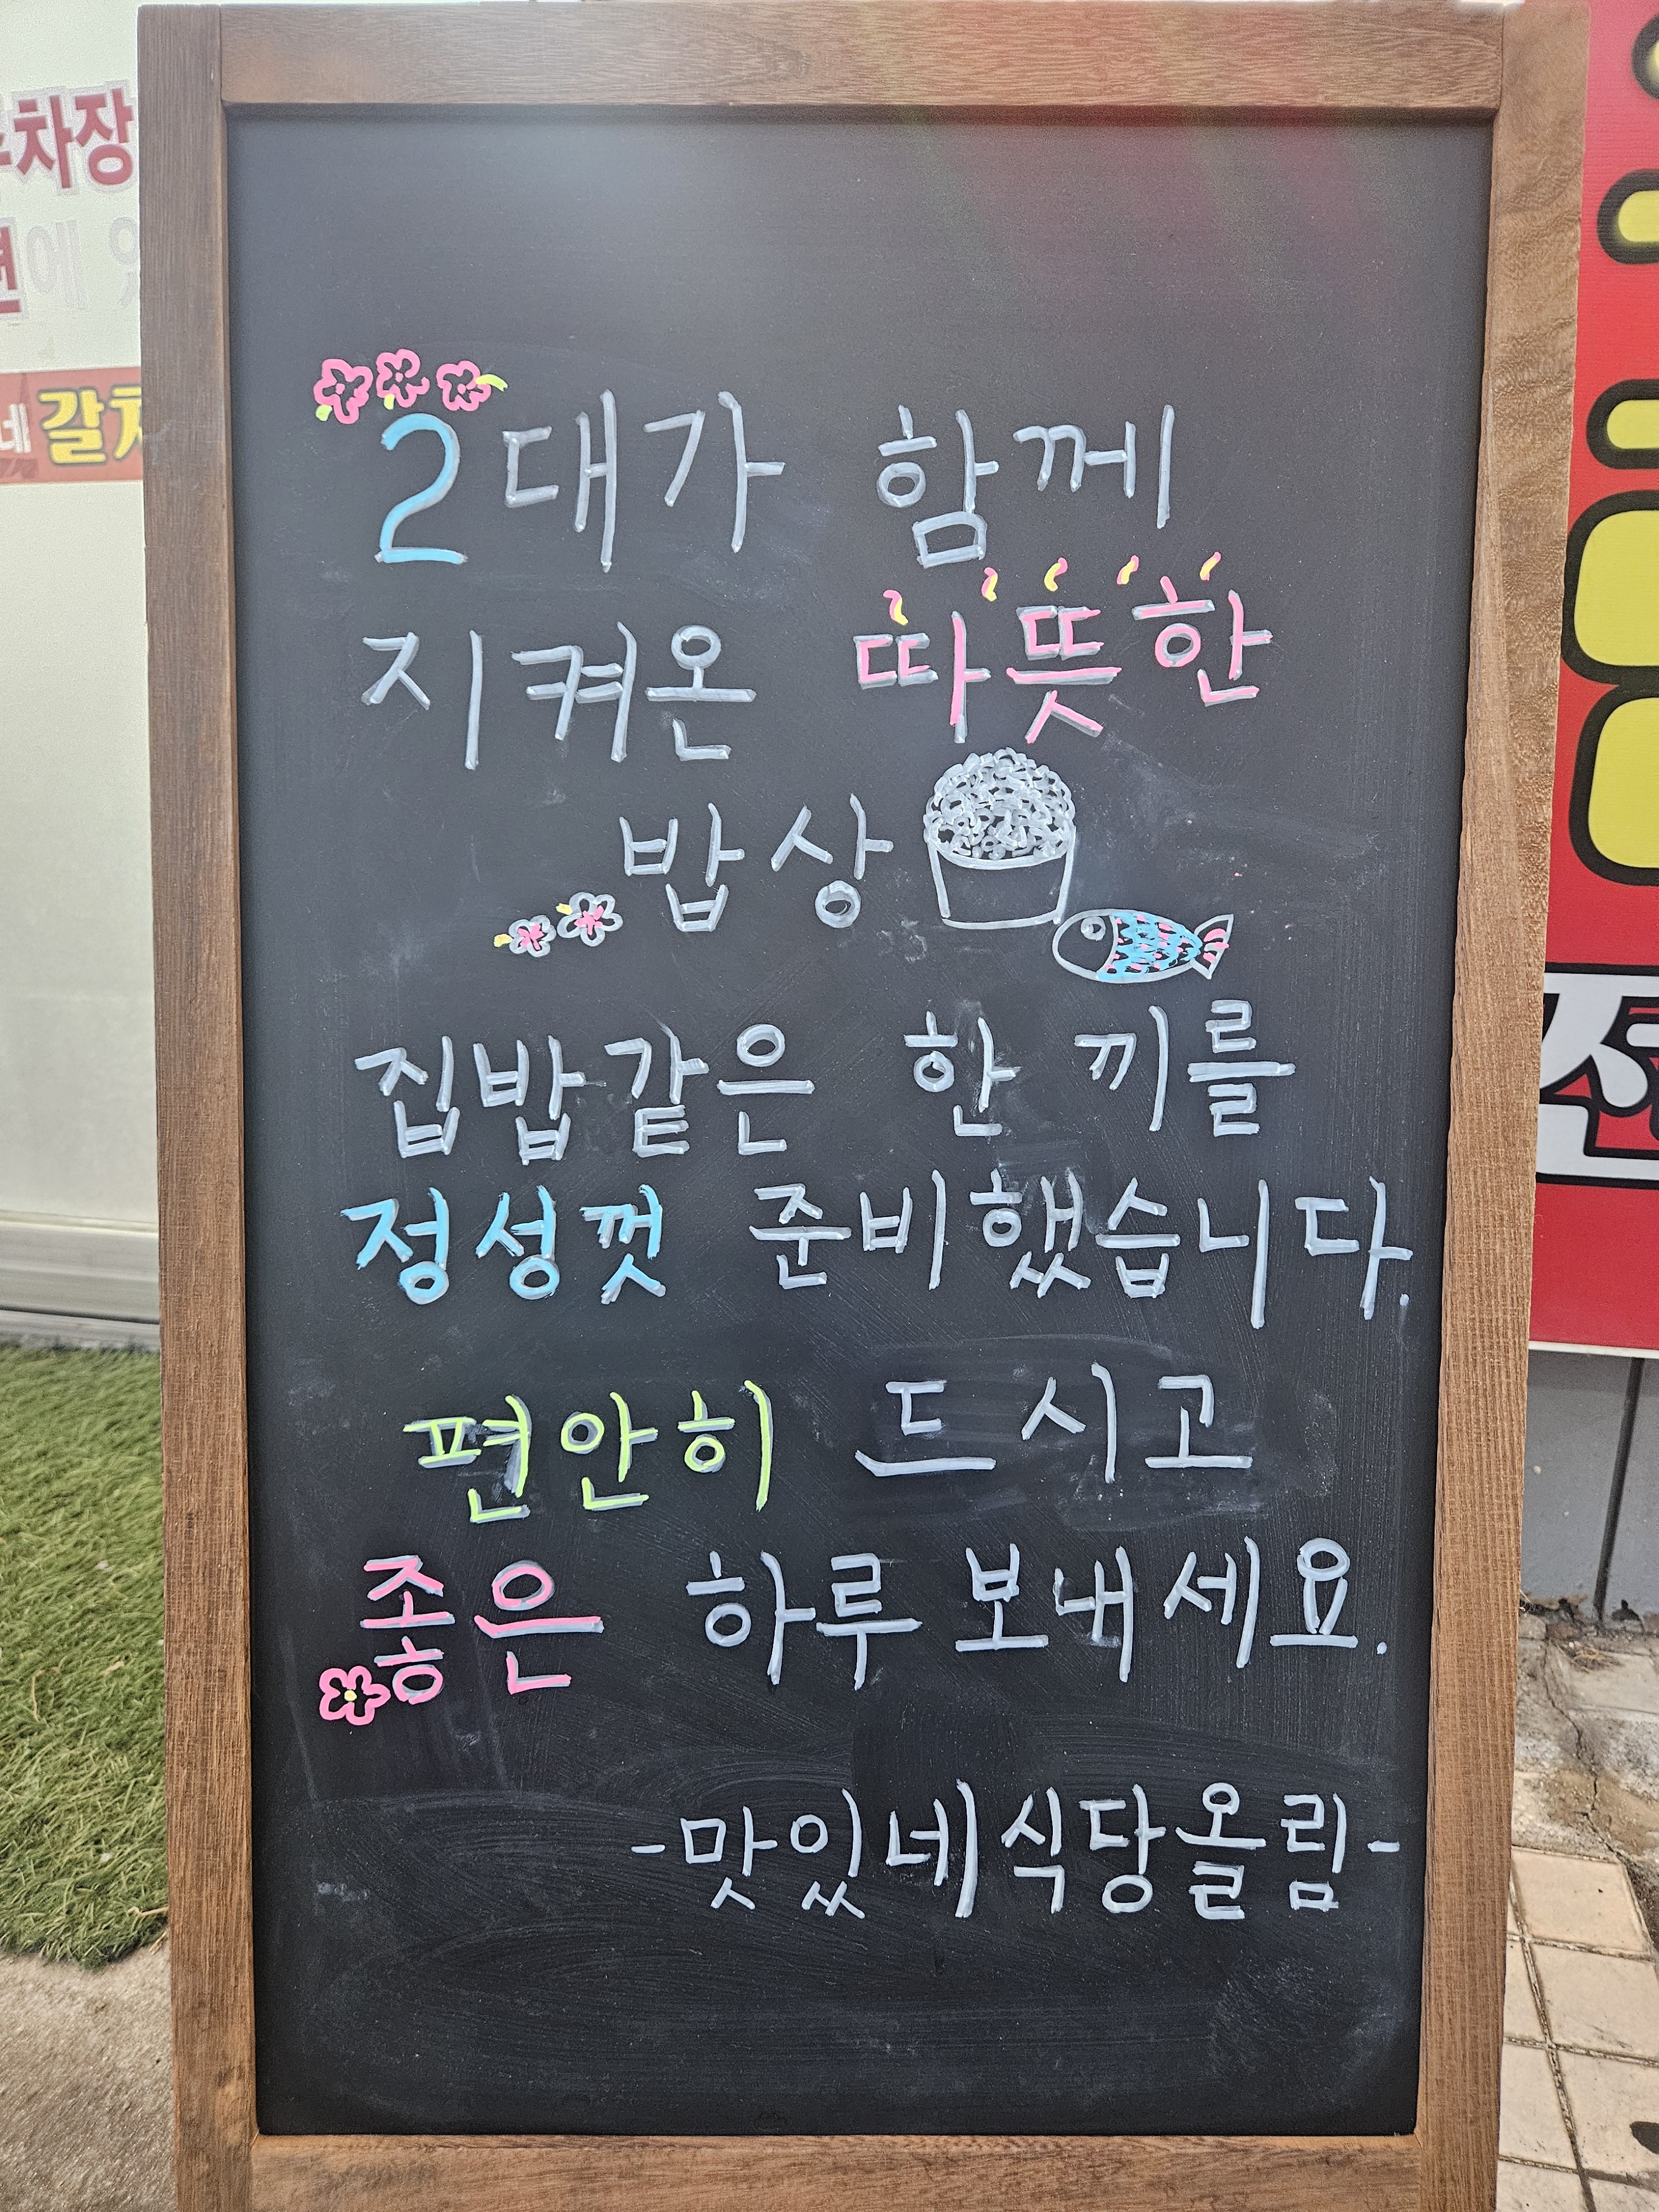 차장
에
네 갈치
2대가 함께
지켜온 따뜻한
밥상
집밥같은 한 끼를
정성껏 준비했습니다.
편안히 드시고
좋은 하루 보내세요.
-맛있네식당올림-